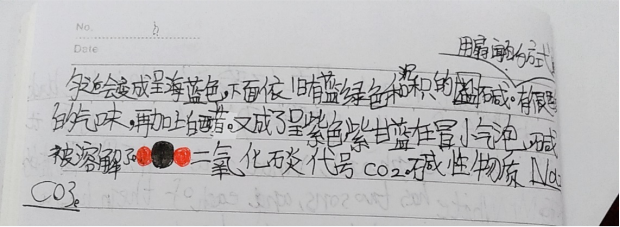 No. h
Date
用扇闻的方式
会变成呈海蓝色,下面依旧有蓝绿色和沉积的碱。有
的气味,再加上白醋。又成了呈紫色紫甘蓝在冒小气泡,碱
被溶解了。二氧化碳代号CO2。碱性物质Na2
CO3。